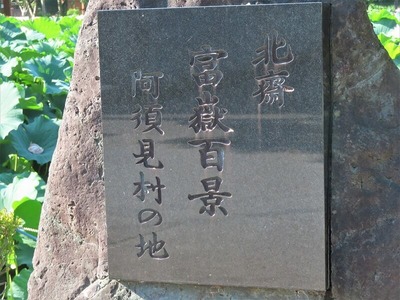 北斎
富嶽百景
阿須見村の地